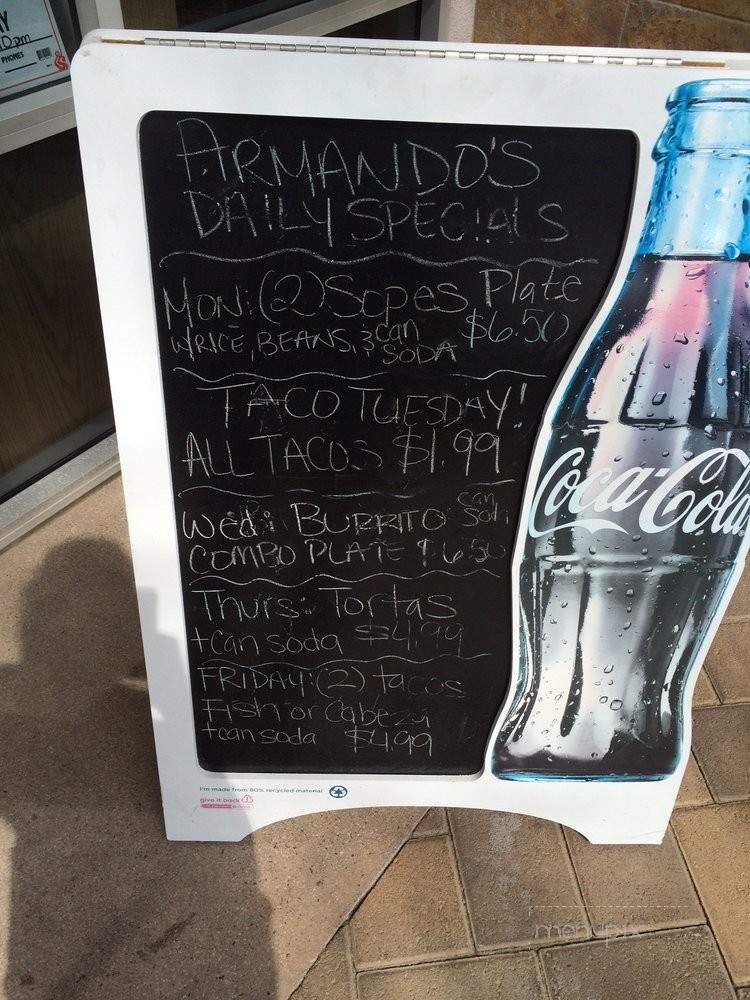 Y
0pm
PHONES
ARMANDO'S
DAILY SPECIALS
MON: (2) Sopes Plate
W/RICE, BEANS, & can SODA $6.50
TACO TUESDAY!
ALL TACOS $1.99
Wed: BURRITO can Soda
COMBO PLATE $6.50
Thurs: Tortas
+can soda $4.99
FRIDAY: (2) tacos
Fish or Cabeza
+can soda $4.99
Coca-Cola
I'm made from 80% recycled material
give it back
menupix